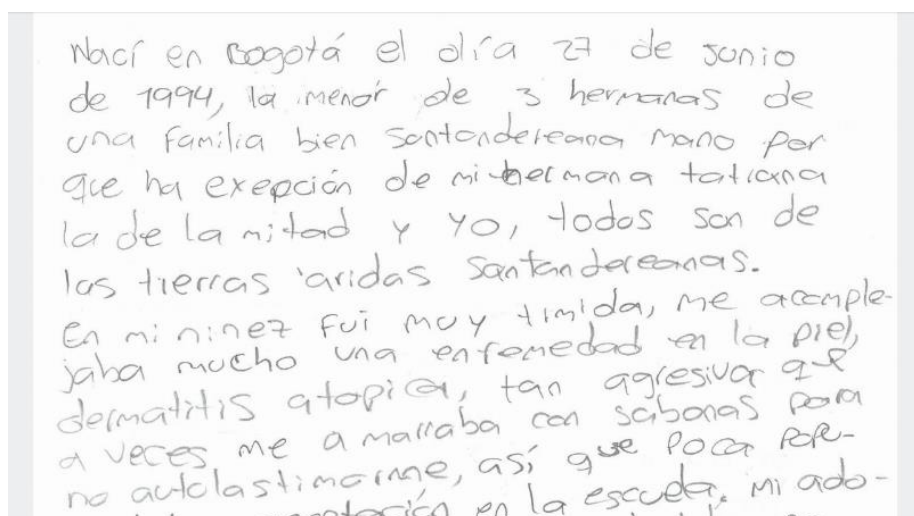 Nací en Bogotá el día 27 de Junio
de 1994, la menor de 3 hermanas de
una familia bien santandereana mano por
que ha exepción de mi hermana tatiana
la de la mitad y yo, todos son de
las tierras áridas santandereanas.
En mi ninez fui muy timida, me acomple-
jaba mucho una enfemedad en la piel,
dermatitis atopica, tan agresiva que
a veces me amarraba con sabanas para
no autolastimarme, así que poca
en la escuela. Mi ado-